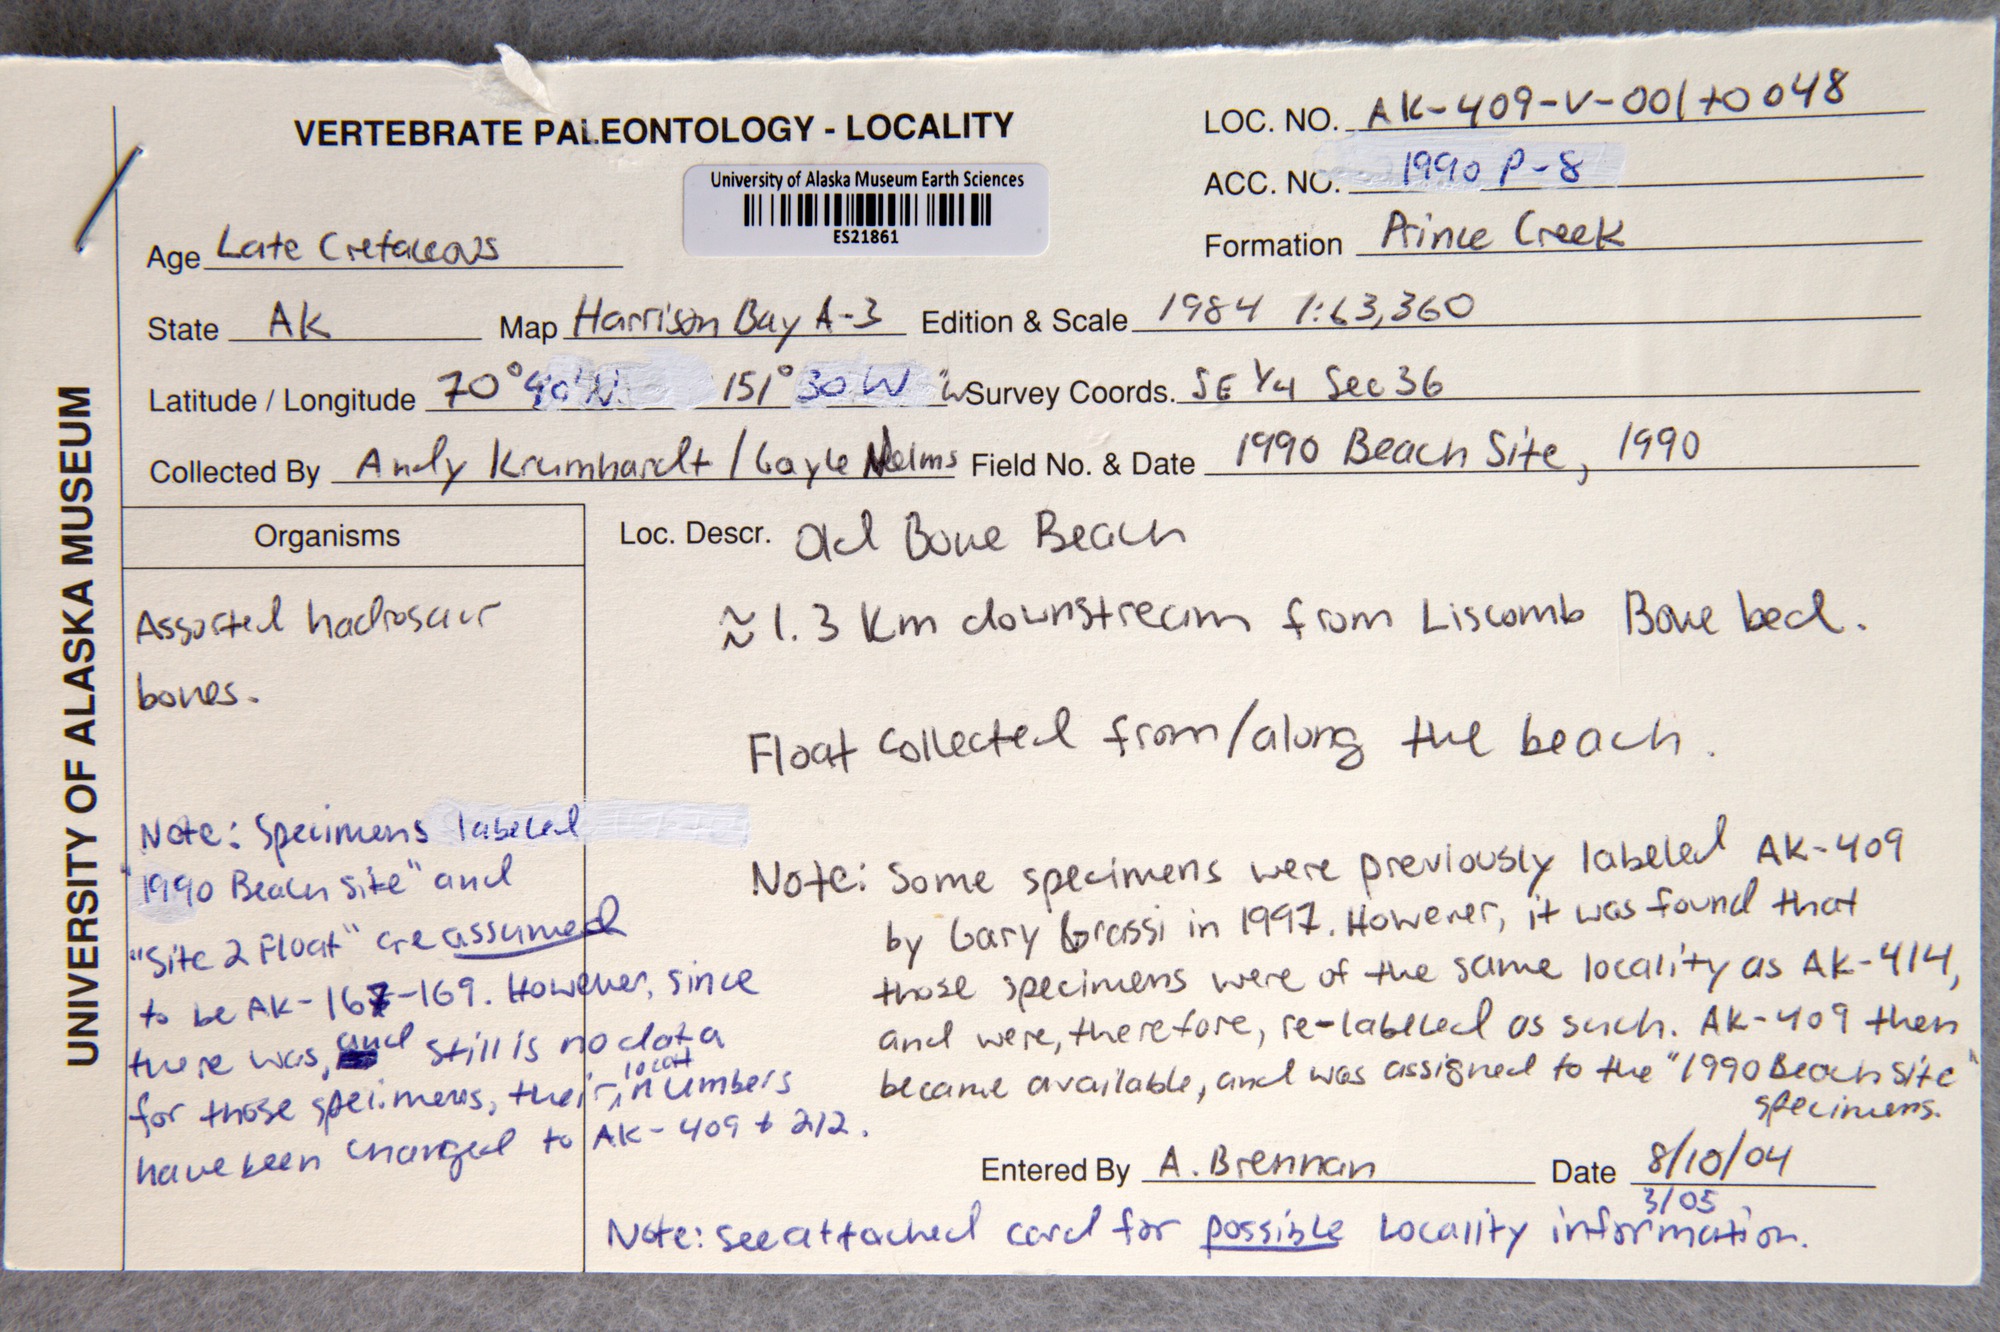 VERTEBRATE PALEONTOLOGY - LOCALITY
LOC. NO. AK-409-V-001 to 048
University of Alaska Museum Earth Sciences
ES21861
ACC. NO. 1990 P-8
Age Late Cretaceous
Formation Prince Creek
State AK Map Harrison Bay A-3 Edition & Scale 1984 1:63,360
Latitude / Longitude 70°40'N. 151°30 W "W Survey Coords. SE 1/4 Sec 36
Collected By Andy Krumhardt / Gayle Nelms Field No. & Date 1990 Beach Site, 1990
UNIVERSITY OF ALASKA MUSEUM
Organisms
Assorted hadrosaur
bones.
Note: Specimens labeled
"1990 Beach Site" and
"Site 2 Float" are assumed
to be AK-167-169. However, since
there was, and still is no data
for those specimens, their locat. numbers
have been changed to AK-409 + 212.
Loc. Descr. Old Bone Beach
≈1.3 Km downstream from Liscomb Bone bed.
Float collected from/along the beach.
Note: Some specimens were previously labeled AK-409
by Gary Grassi in 1997. However, it was found that
those specimens were of the same locality as AK-414,
and were, therefore, re-labeled as such. AK-409 then
became available, and was assigned to the "1990 Beach Site"
specimens.
Entered By A. Brennan Date 8/10/04
3/05
Note: see attached card for possible locality information.